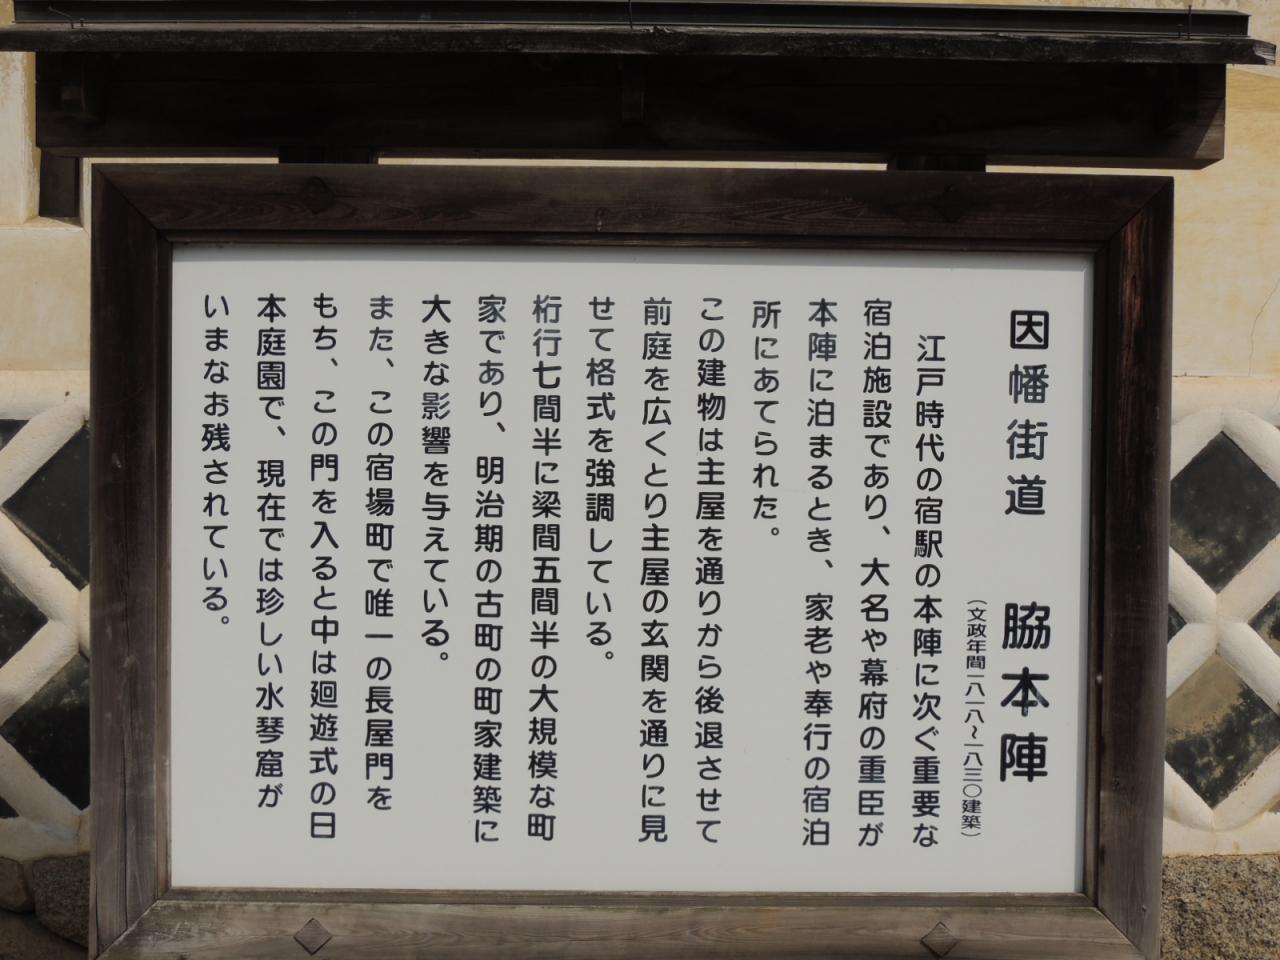 因幡街道　脇本陣
（文政年間一八一八～一八三〇建築）
江戸時代の宿駅の本陣に次ぐ重要な
宿泊施設であり、大名や幕府の重臣が
本陣に泊まるとき、家老や奉行の宿泊
所にあてられた。
この建物は主屋を通りから後退させて
前庭を広くとり主屋の玄関を通りに見
せて格式を強調している。
桁行七間半に梁間五間半の大規模な町
家であり、明治期の古町の町家建築に
大きな影響を与えている。
また、この宿場町で唯一の長屋門を
もち、この門を入ると中は廻遊式の日
本庭園で、現在では珍しい水琴窟が
いまなお残されている。